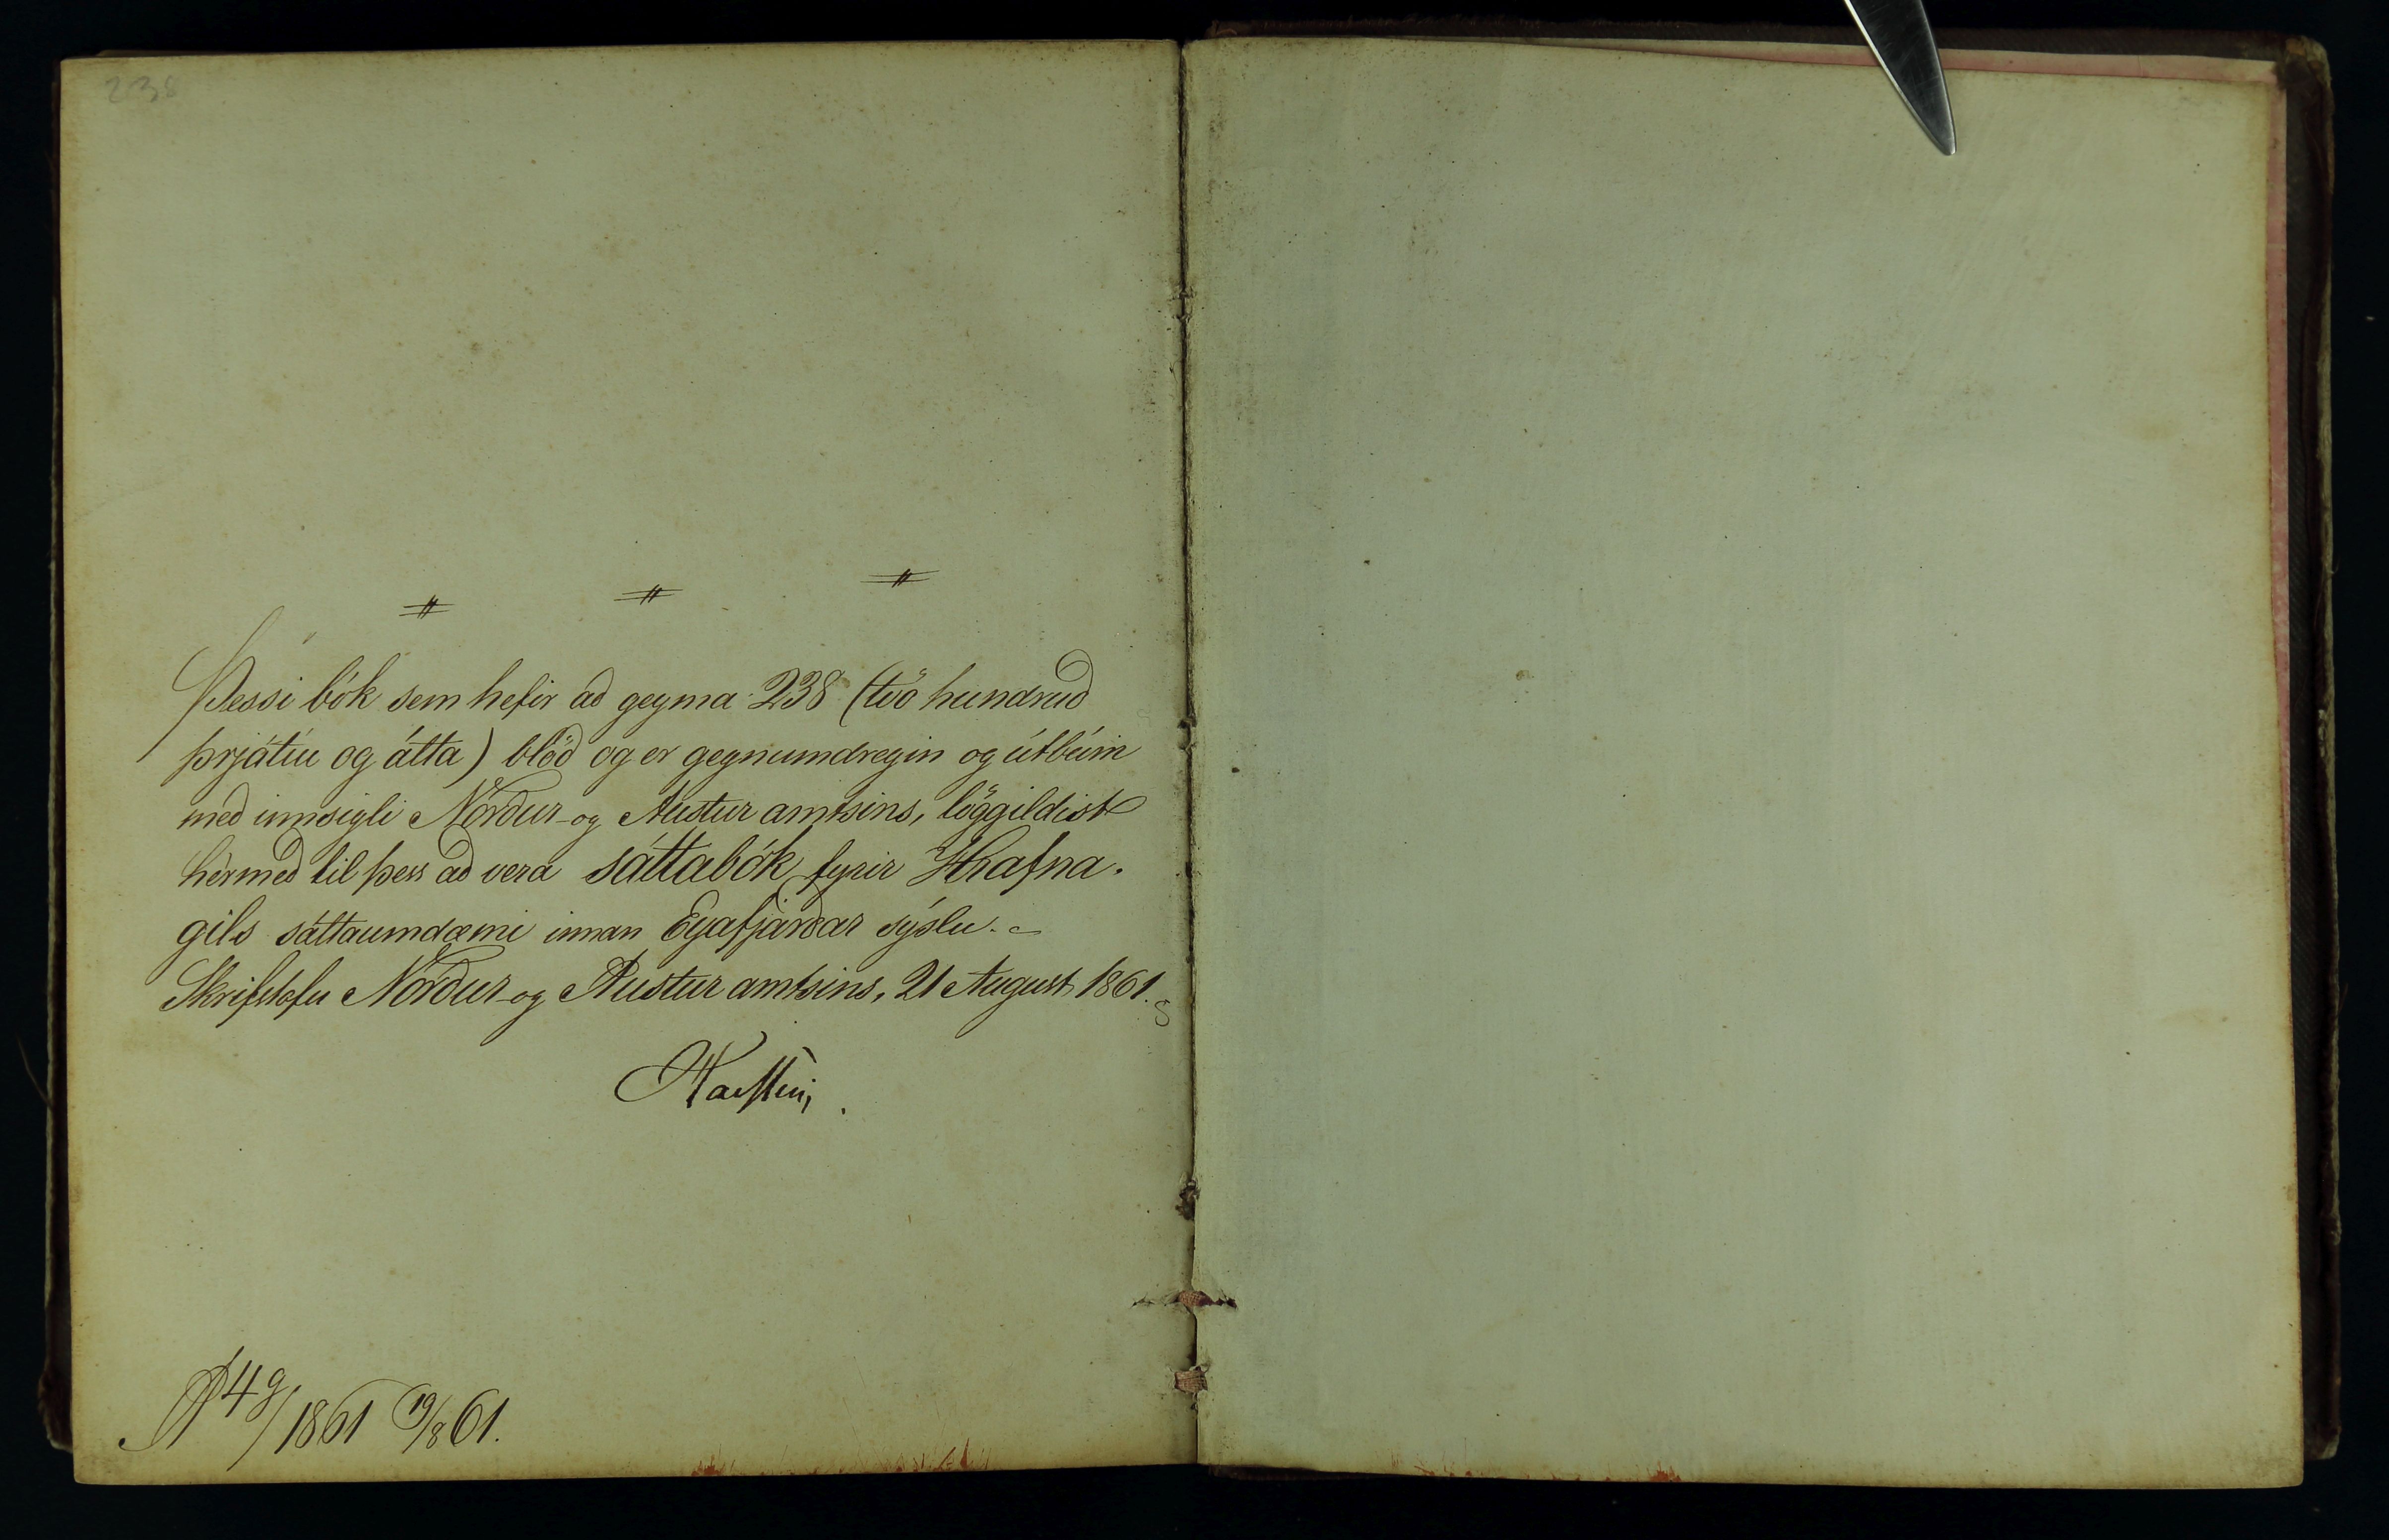 238
Þessi bók sem hefir að geyma 238 (tvö hundruð
þrjátíu og átta) blöð og er gegnumdregin og útbúin
með innsigli Norður- og Austur amtsins, löggildist
hérmeð til þess að vera sáttabók fyrir Hrafna-
gils sáttaumdæmi innan Eyafjarðar sýslu. -
Skrifstofu Norður- og Austur amtsins, 21 August 1861.
Havstein
/1861 19/8 61.